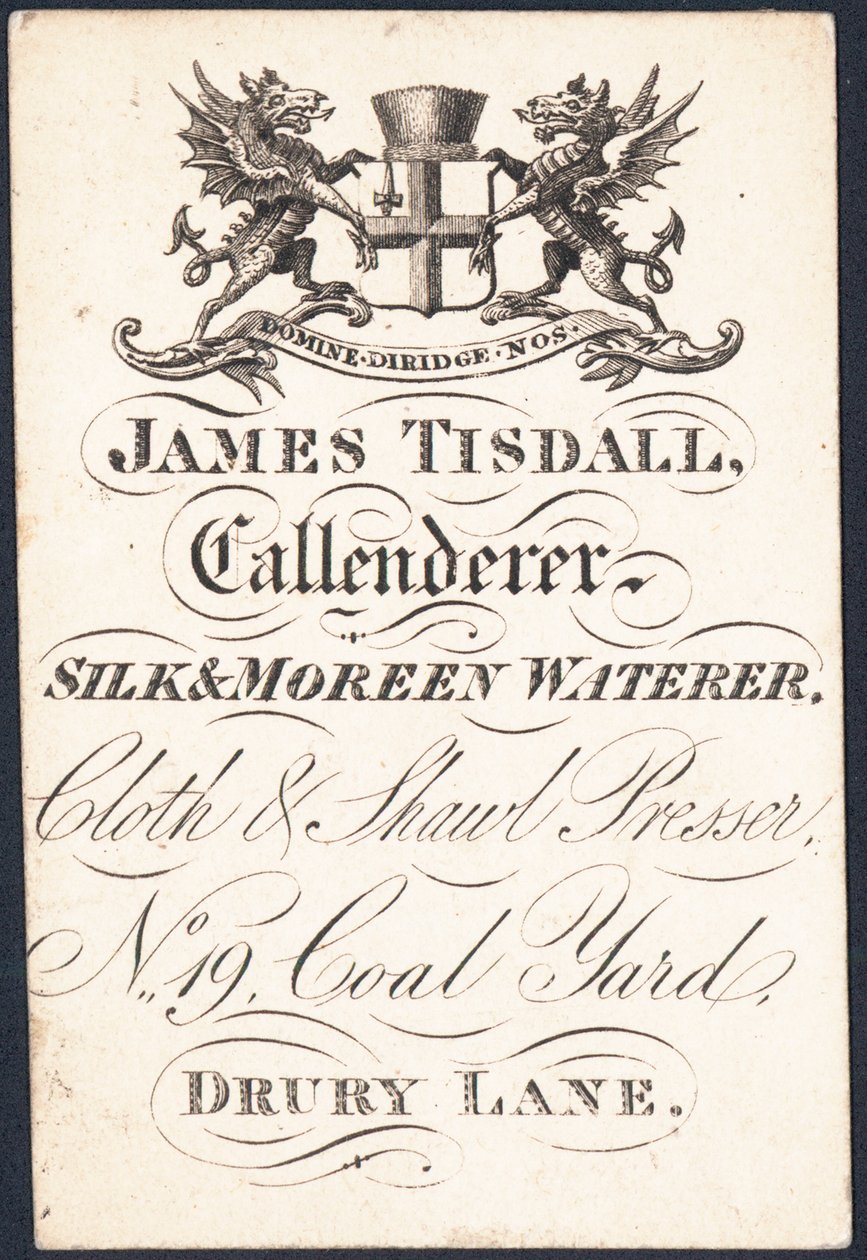 DOMINE·DIRIDGE·NOS·
JAMES TISDALL,
Callenderer
SILK & MOREEN WATERER.
Cloth & Shawl Presser,
No. 19, Coal Yard,
DRURY LANE.